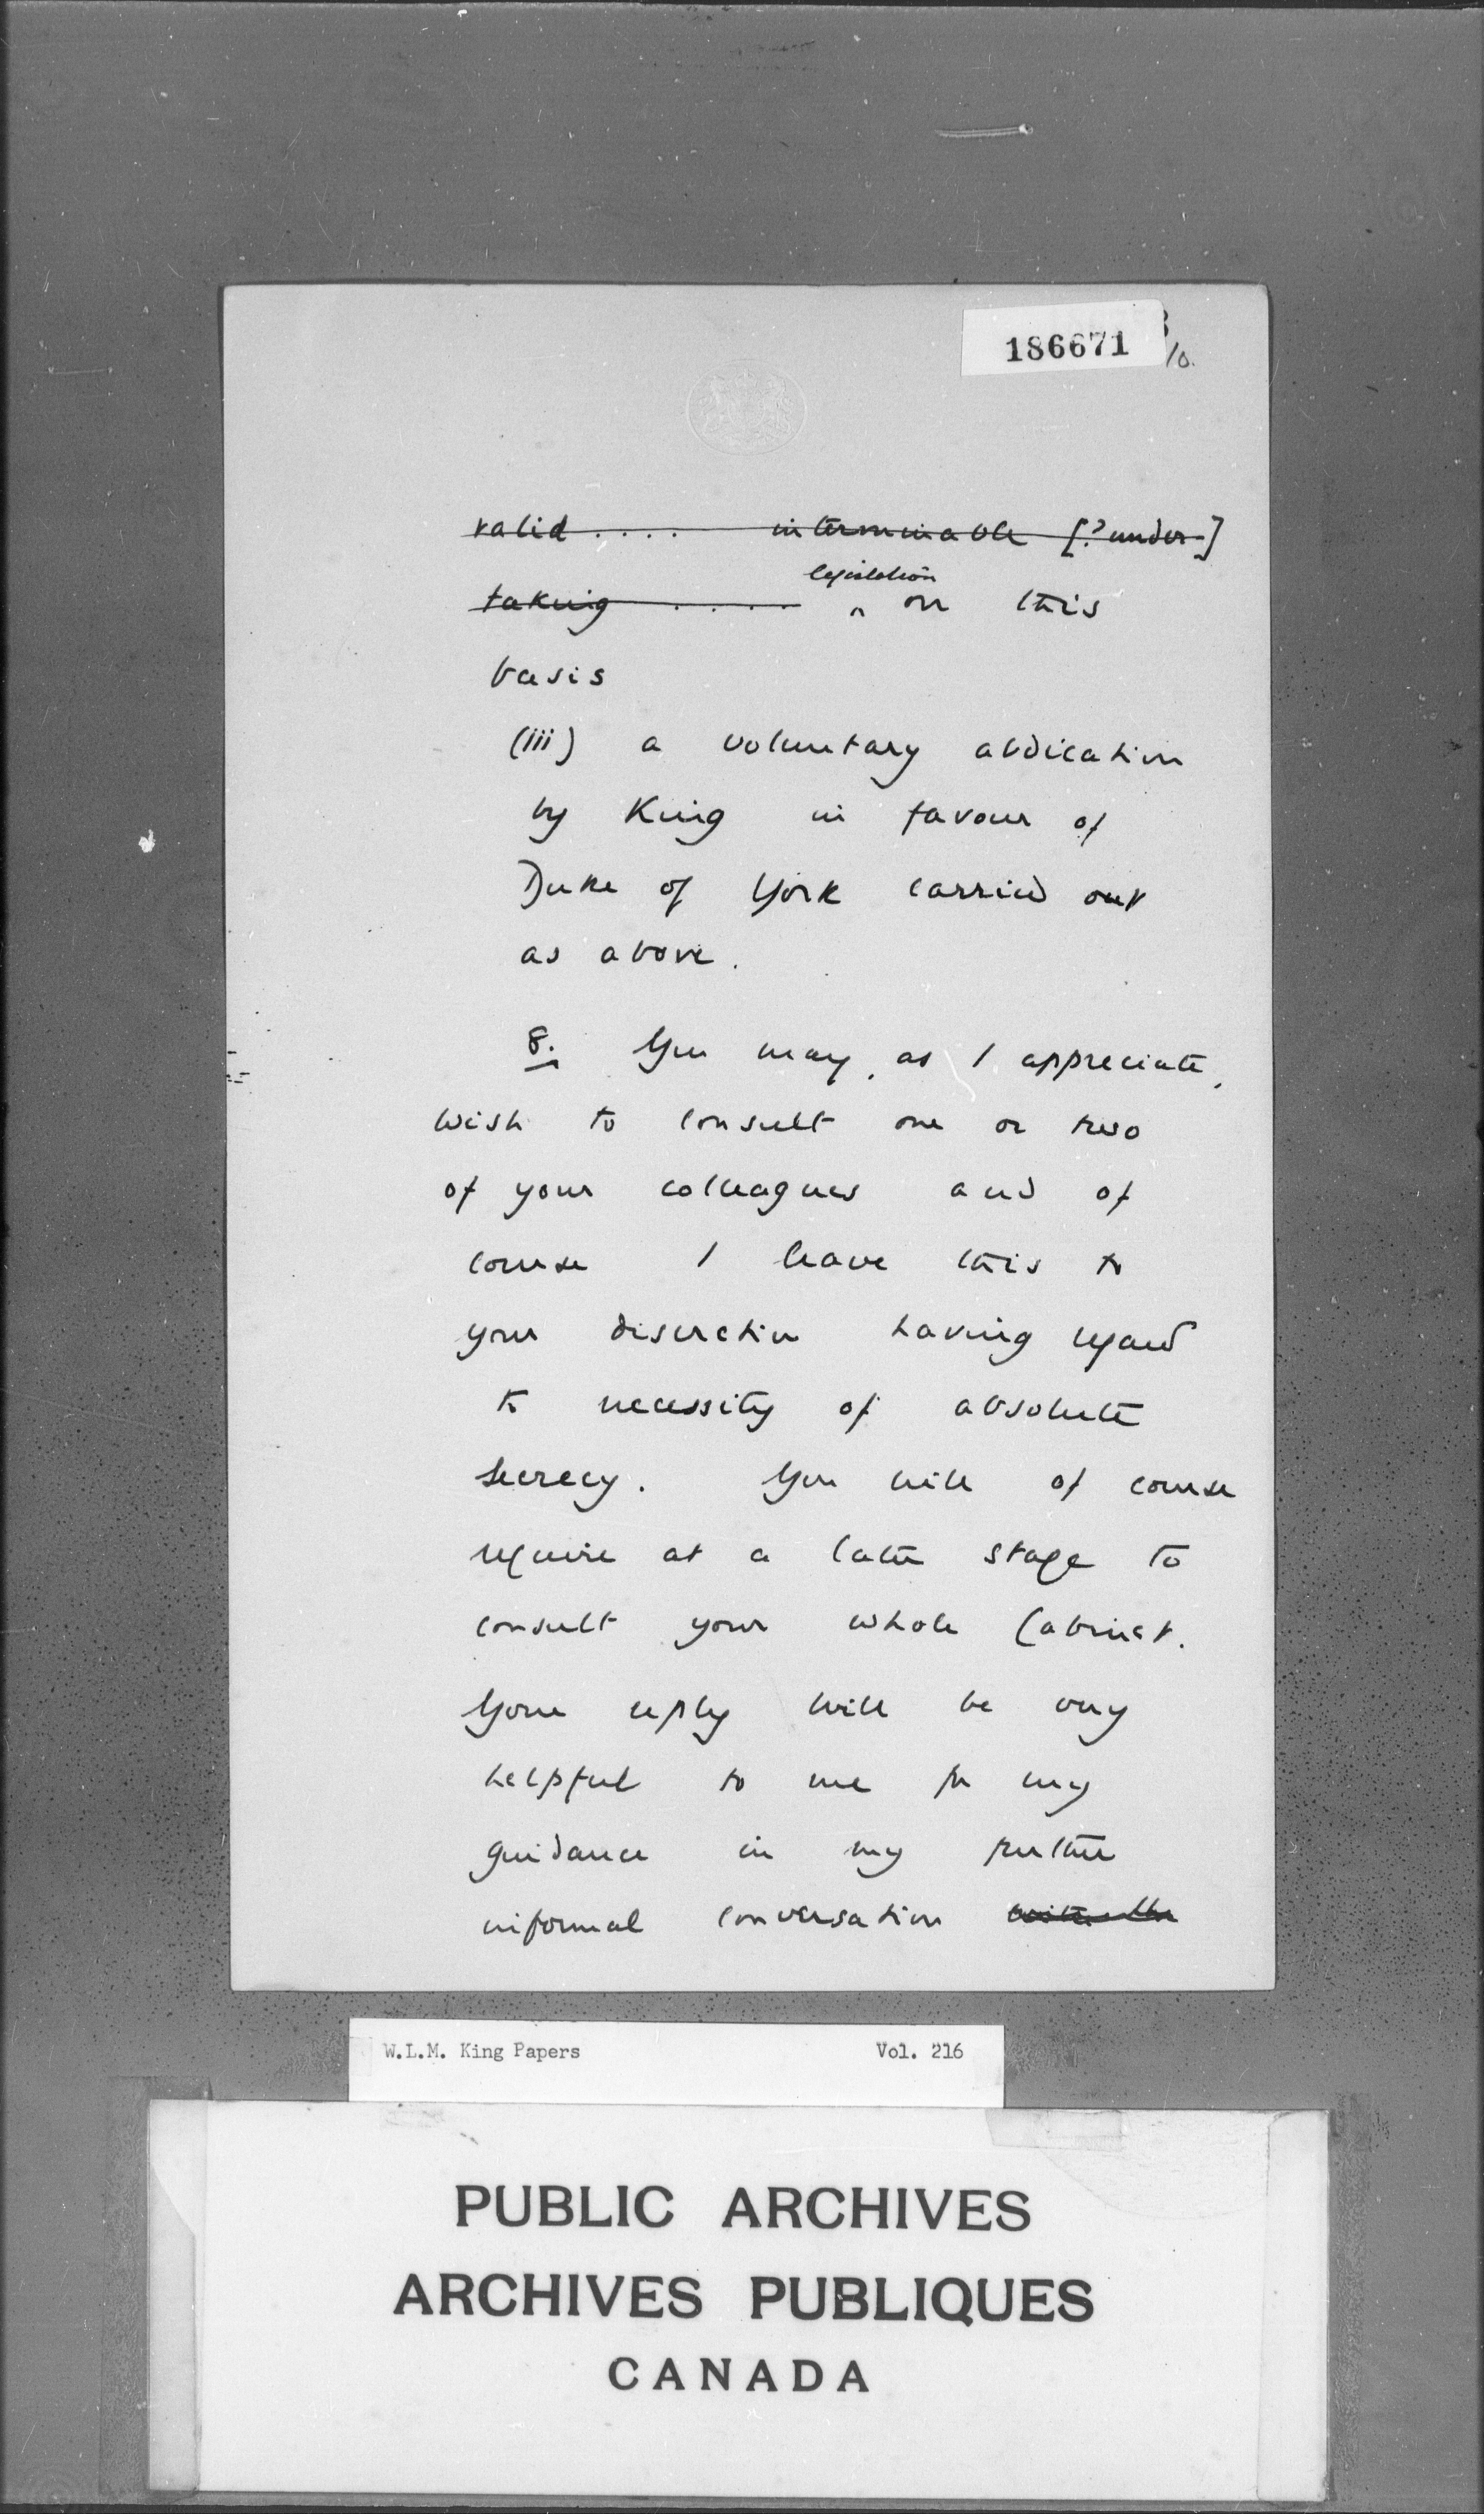 186671
10.
valid .... interminable [? under-]
legislation
taking .... ^ on this
basis
(iii) a voluntary abdication
by King in favour of
Duke of York carried out
as above.
8. You may, as I appreciate,
wish to consult one or two
of your colleagues and of
course I leave this to
your discretion having regard
to necessity of absolute
secrecy. You will of course
require at a later stage to
consult your whole Cabinet.
Your reply will be very
helpful to me for my
guidance in my further
informal conversation with the
W.L.M. King Papers Vol. 216
PUBLIC ARCHIVES
ARCHIVES PUBLIQUES
CANADA